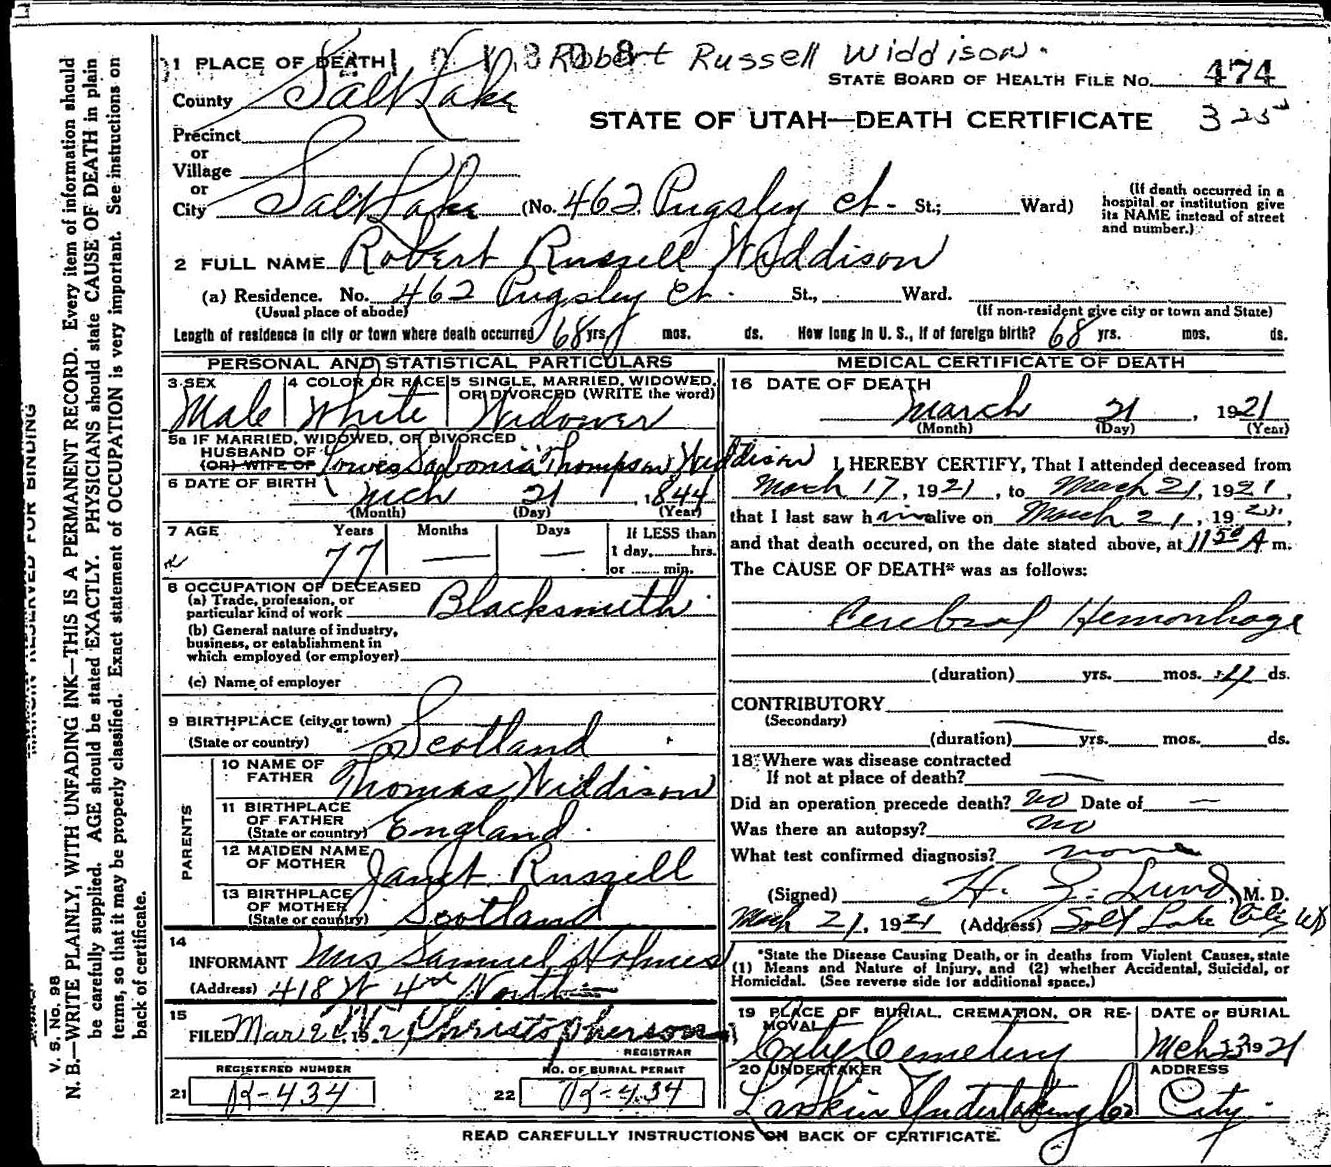 Robert Russell Widdison.
1 PLACE OF DEATH
STATE BOARD OF HEALTH FILE No. 474
County Salt Lake
STATE OF UTAH—DEATH CERTIFICATE 325
Precinct
or
Village
or
City Salt Lake (No. 462 Pugsley Ct. St.; Ward)
(If death occurred in a hospital or institution give its NAME instead of street and number.)
2 FULL NAME Robert Russell Widdison
(a) Residence. No. 462 Pugsley Ct. St., Ward.
(Usual place of abode) (If non-resident give city or town and State)
Length of residence in city or town where death occurred 68 yrs. mos. ds. How long in U. S., if of foreign birth? 68 yrs. mos. ds.
PERSONAL AND STATISTICAL PARTICULARS
3 SEX Male
4 COLOR OR RACE White
5 SINGLE, MARRIED, WIDOWED, OR DIVORCED (WRITE the word) Widower
5a IF MARRIED, WIDOWED, OR DIVORCED
HUSBAND OF
(OR) WIFE OF Thompson Widdison
6 DATE OF BIRTH Mch 21, 1844
(Month) (Day) (Year)
7 AGE Years 77 Months — Days — If LESS than
1 day, hrs.
or min.
8 OCCUPATION OF DECEASED
(a) Trade, profession, or
particular kind of work Blacksmith
(b) General nature of industry,
business, or establishment in
which employed (or employer)
(c) Name of employer
9 BIRTHPLACE (city or town)
(State or country) Scotland
PARENTS
10 NAME OF
FATHER Thomas Widdison
11 BIRTHPLACE
OF FATHER
(State or country) England
12 MAIDEN NAME
OF MOTHER Janet Russell
13 BIRTHPLACE
OF MOTHER
(State or country) Scotland
14
INFORMANT Mrs Samuel Holmes
(Address) 418 W 4th North
15
FILED Mar 192 Christopherson
REGISTRAR
REGISTERED NUMBER
21 R-434
NO. OF BURIAL PERMIT
22 R-434
MEDICAL CERTIFICATE OF DEATH
16 DATE OF DEATH
March 21, 1921
(Month) (Day) (Year)
I HEREBY CERTIFY, That I attended deceased from
March 17, 1921, to March 21, 1921,
that I last saw him alive on March 21, 19
and that death occured, on the date stated above, at 11 50 A m.
The CAUSE OF DEATH* was as follows:
Cerebral Hemorrhage
(duration) yrs. mos. 4 ds.
CONTRIBUTORY
(Secondary)
(duration) yrs. mos. ds.
18 Where was disease contracted
If not at place of death? —
Did an operation precede death? No Date of —
Was there an autopsy? No
What test confirmed diagnosis? none
(Signed) H. Z. Lund, M. D.
Mch 21, 1921 (Address) Salt Lake City
*State the Disease Causing Death, or in deaths from Violent Causes, state
(1) Means and Nature of Injury, and (2) whether Accidental, Suicidal, or
Homicidal. (See reverse side for additional space.)
19 PLACE OF BURIAL, CREMATION, OR RE-
MOVAL
City Cemetery
DATE OF BURIAL
Mch 23 1921
20 UNDERTAKER
Larkin Undertaking Co
ADDRESS
City.
READ CAREFULLY INSTRUCTIONS ON BACK OF CERTIFICATE.
MARGIN RESERVED FOR BINDING
V. S. No. 98
N. B.—WRITE PLAINLY, WITH UNFADING INK—THIS IS A PERMANENT RECORD. Every item of information should
be carefully supplied. AGE should be stated EXACTLY. PHYSICIANS should state CAUSE OF DEATH in plain
terms, so that it may be properly classified. Exact statement of OCCUPATION is very important. See instructions on
back of certificate.